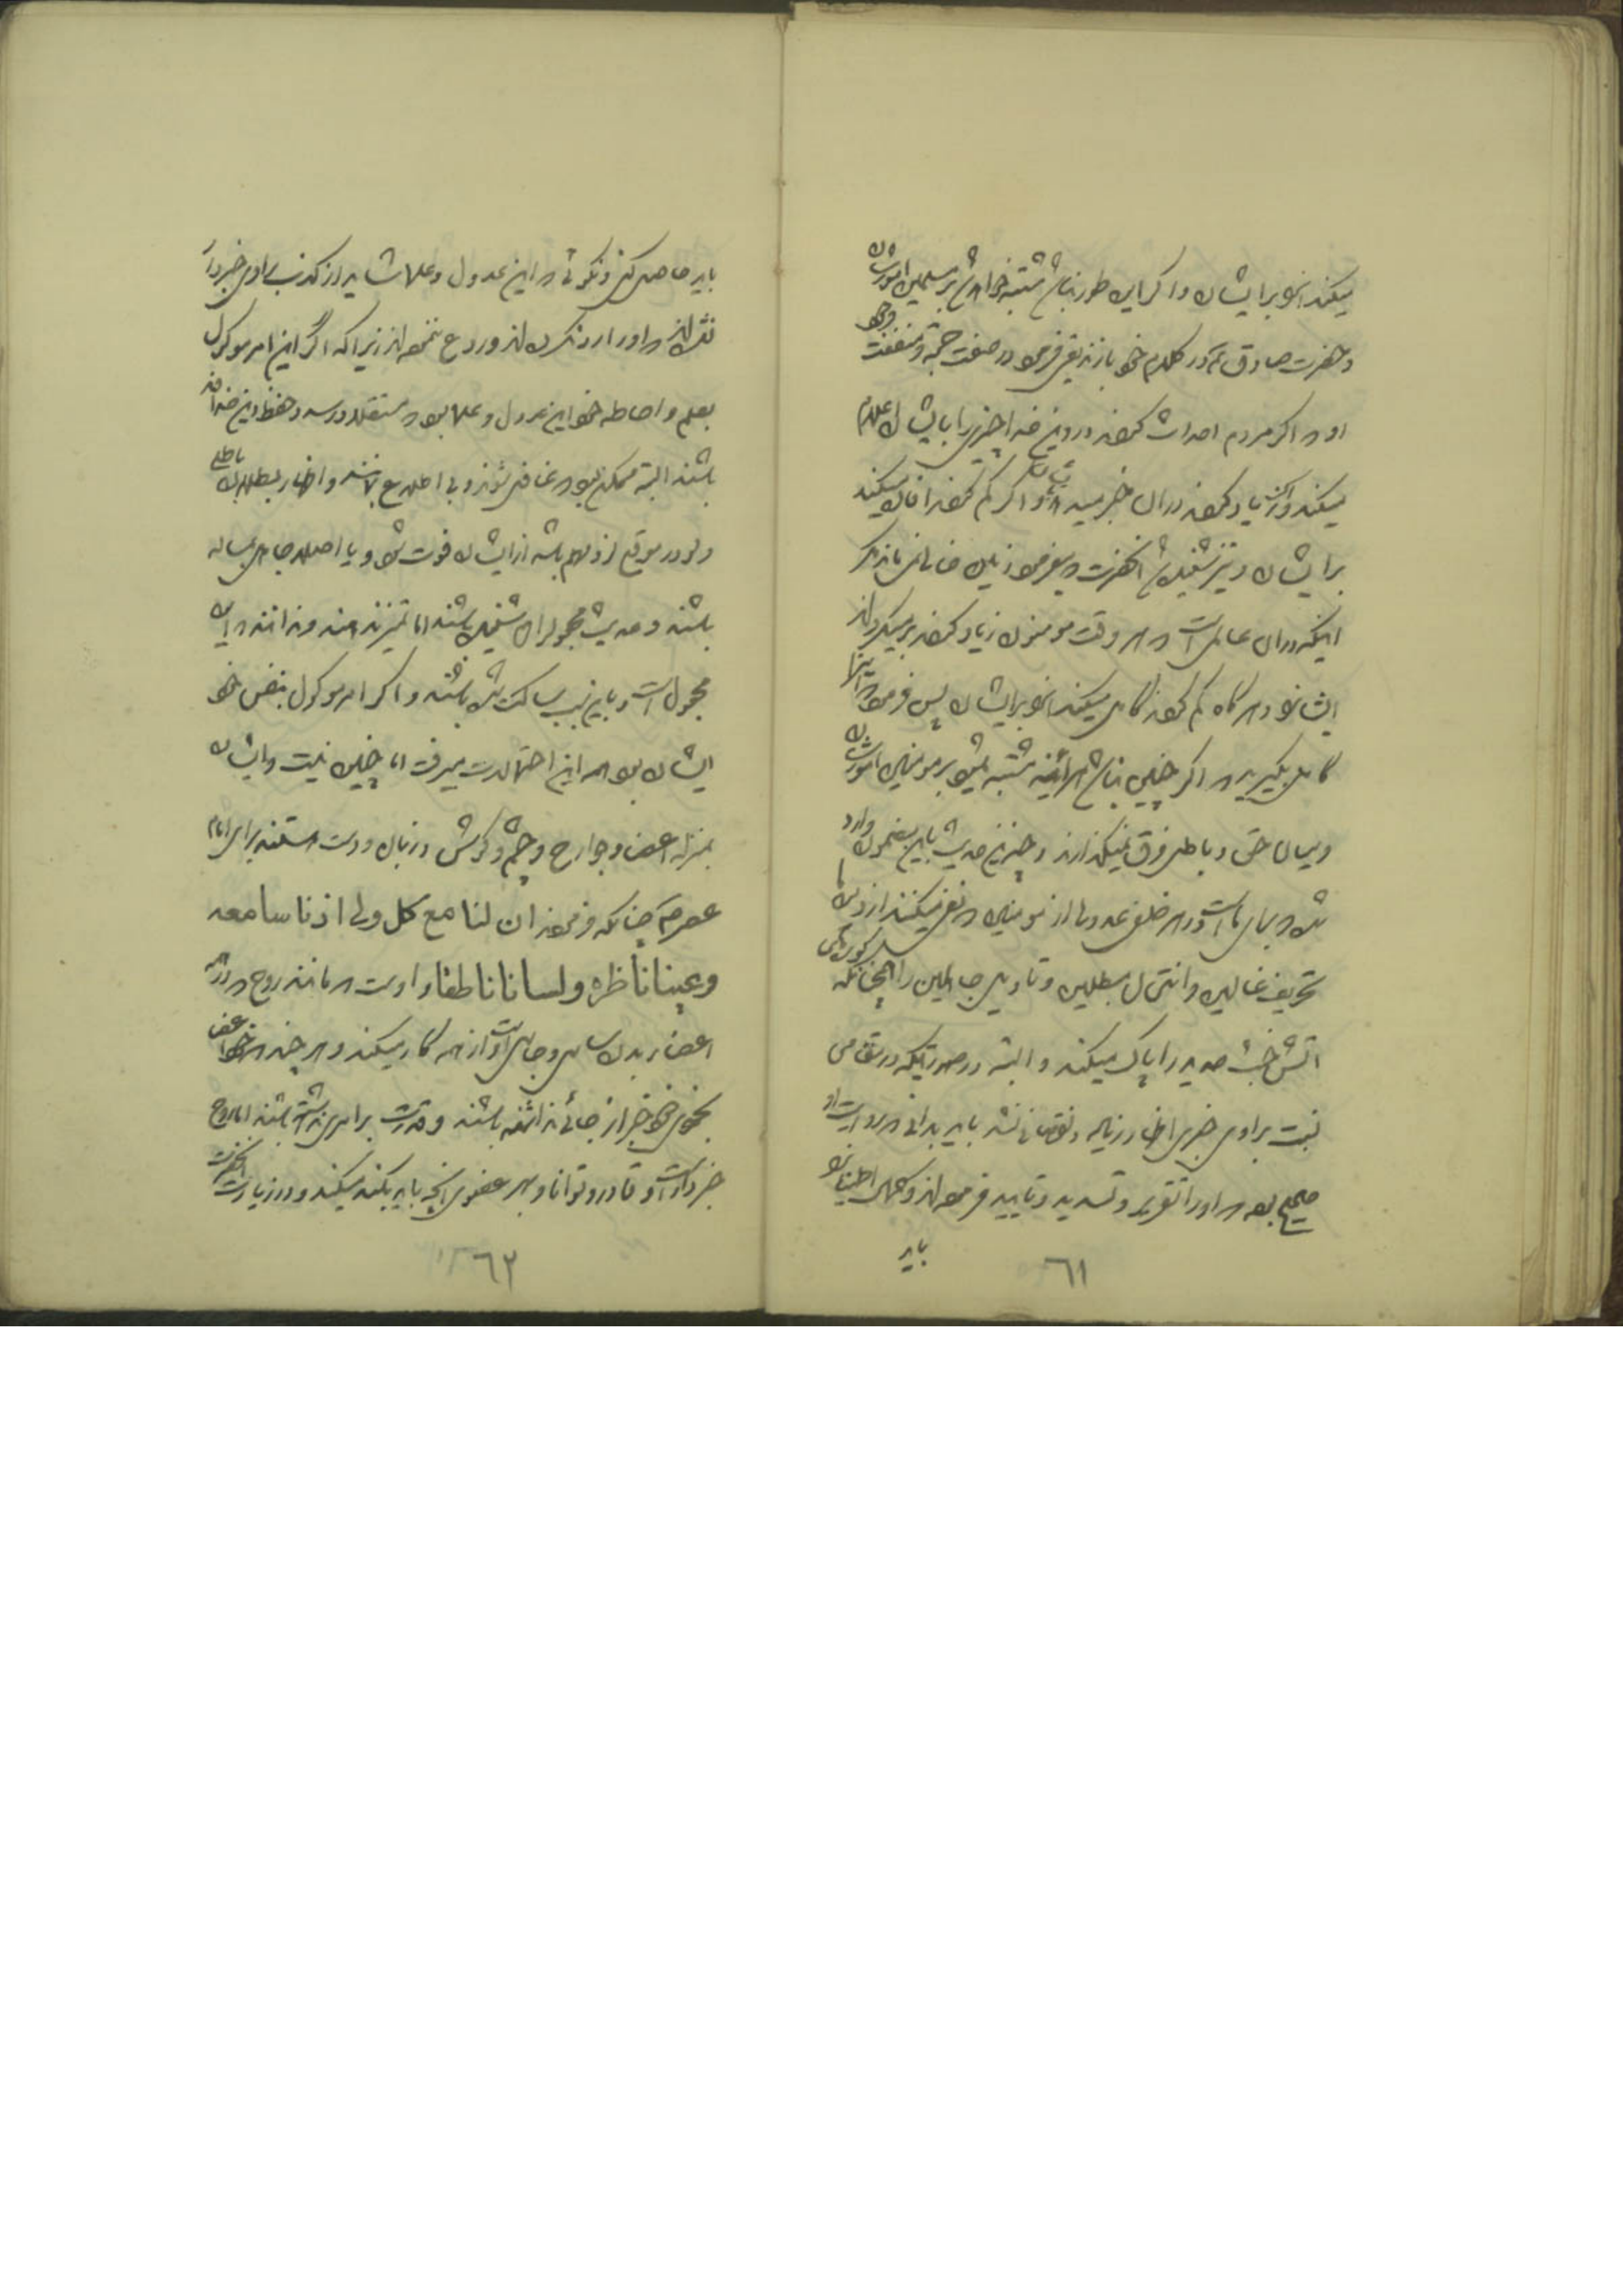 میکند انرا برایشان و اگر این طور نباشد مشتبه خواهد شد بر مسلمین امورشان
و حضرت صادق ع در کلام خود با زندیقی فرمود در صفت حجة و منفعت وجود
او که اگر مردم احداث کنند در دین خدا چیزی را بایشان اعلام
میکند و اگر زیاد کنند در آن خبر میدهد و اگر کم کنند افاده میکند
برایشان و نیز شنیدی آنحضرت که میفرمود زمین خالی نمی‌ماند مگر
اینکه در آن عالمی است که هر وقت مومنون زیاد کنند بر میگرداند
ایشانرا و هر گاه کم کنند کامل میکند انرا برایشان پس فرمود اینرا
کامل بگیرید که اگر چنین نباشد هر آینه مشتبه میشود بر مومنین امورشان
و میان حق و باطل فرق نمیگذارند و چندین حدیث باین مضمون وارد
شده که برای ما است در هر خلفی عدولها از مومنین که نفی میکنند از دین ما
تحریف غالین و انتحال مبطلین و تاویل جاهلین را همچنانکه
اتش خبث حدید را پاک میکند و البته در صورتیکه در مقامی
نسبت براوی خبری اظهار زیاده و نقصانی نشد باید بدانی که روایت او
صحیح بوده که او را تقریر و تسدید و تایید فرموده‌اند و کمال اطمینانرا
باید
٦١
باید حاصل کنی و نگوئی که این عدول و علما شاید از کذب راوی خبردار
نشده‌اند که او را رد نکرده‌اند و ردع ننموده‌اند زیرا که اگر این امر موکول
بعلم و احاطه خود این عدول و علما بود که مستقلا در صدد حفظ دین خدا
باشند البته ممکن بود که غافل شوند و بی اطلاع باشند و اظهار بطلان باطلی
ولو در موقع لزوم هم باشد از ایشان فوت شود و یا اصلا جاهل بمسأله
باشند و حدیث مجعول را شنیده باشند اما تمیز ندهند و ندانند که این
مجعول است و باین سبب ساکت شده باشند و اگر امر موکول بنفس خود
ایشان بود همه این احتمالات میرفت اما چنین نیست و ایشان
بمنزله اعضا و جوارح و چشم و گوش و زبان و دست هستند برای امام
عصر ع چنانکه فرمودند ان لنا مع کل ولی اذنا سامعه
و عینا ناظره و لسانا ناطقا و او است که مانند روح که در همه
اعضاء بدن ساری و جاری است از همه کار میکند و هر چند که خود اعضا
بخودی خود خبر از جائی نداشته باشند و قدرت بر امری نداشته باشند اما روح
خبردار است و قادر و توانا و بهر عضوی انچه باید بکند میکند و در زیارت آنحضرت
٦٢